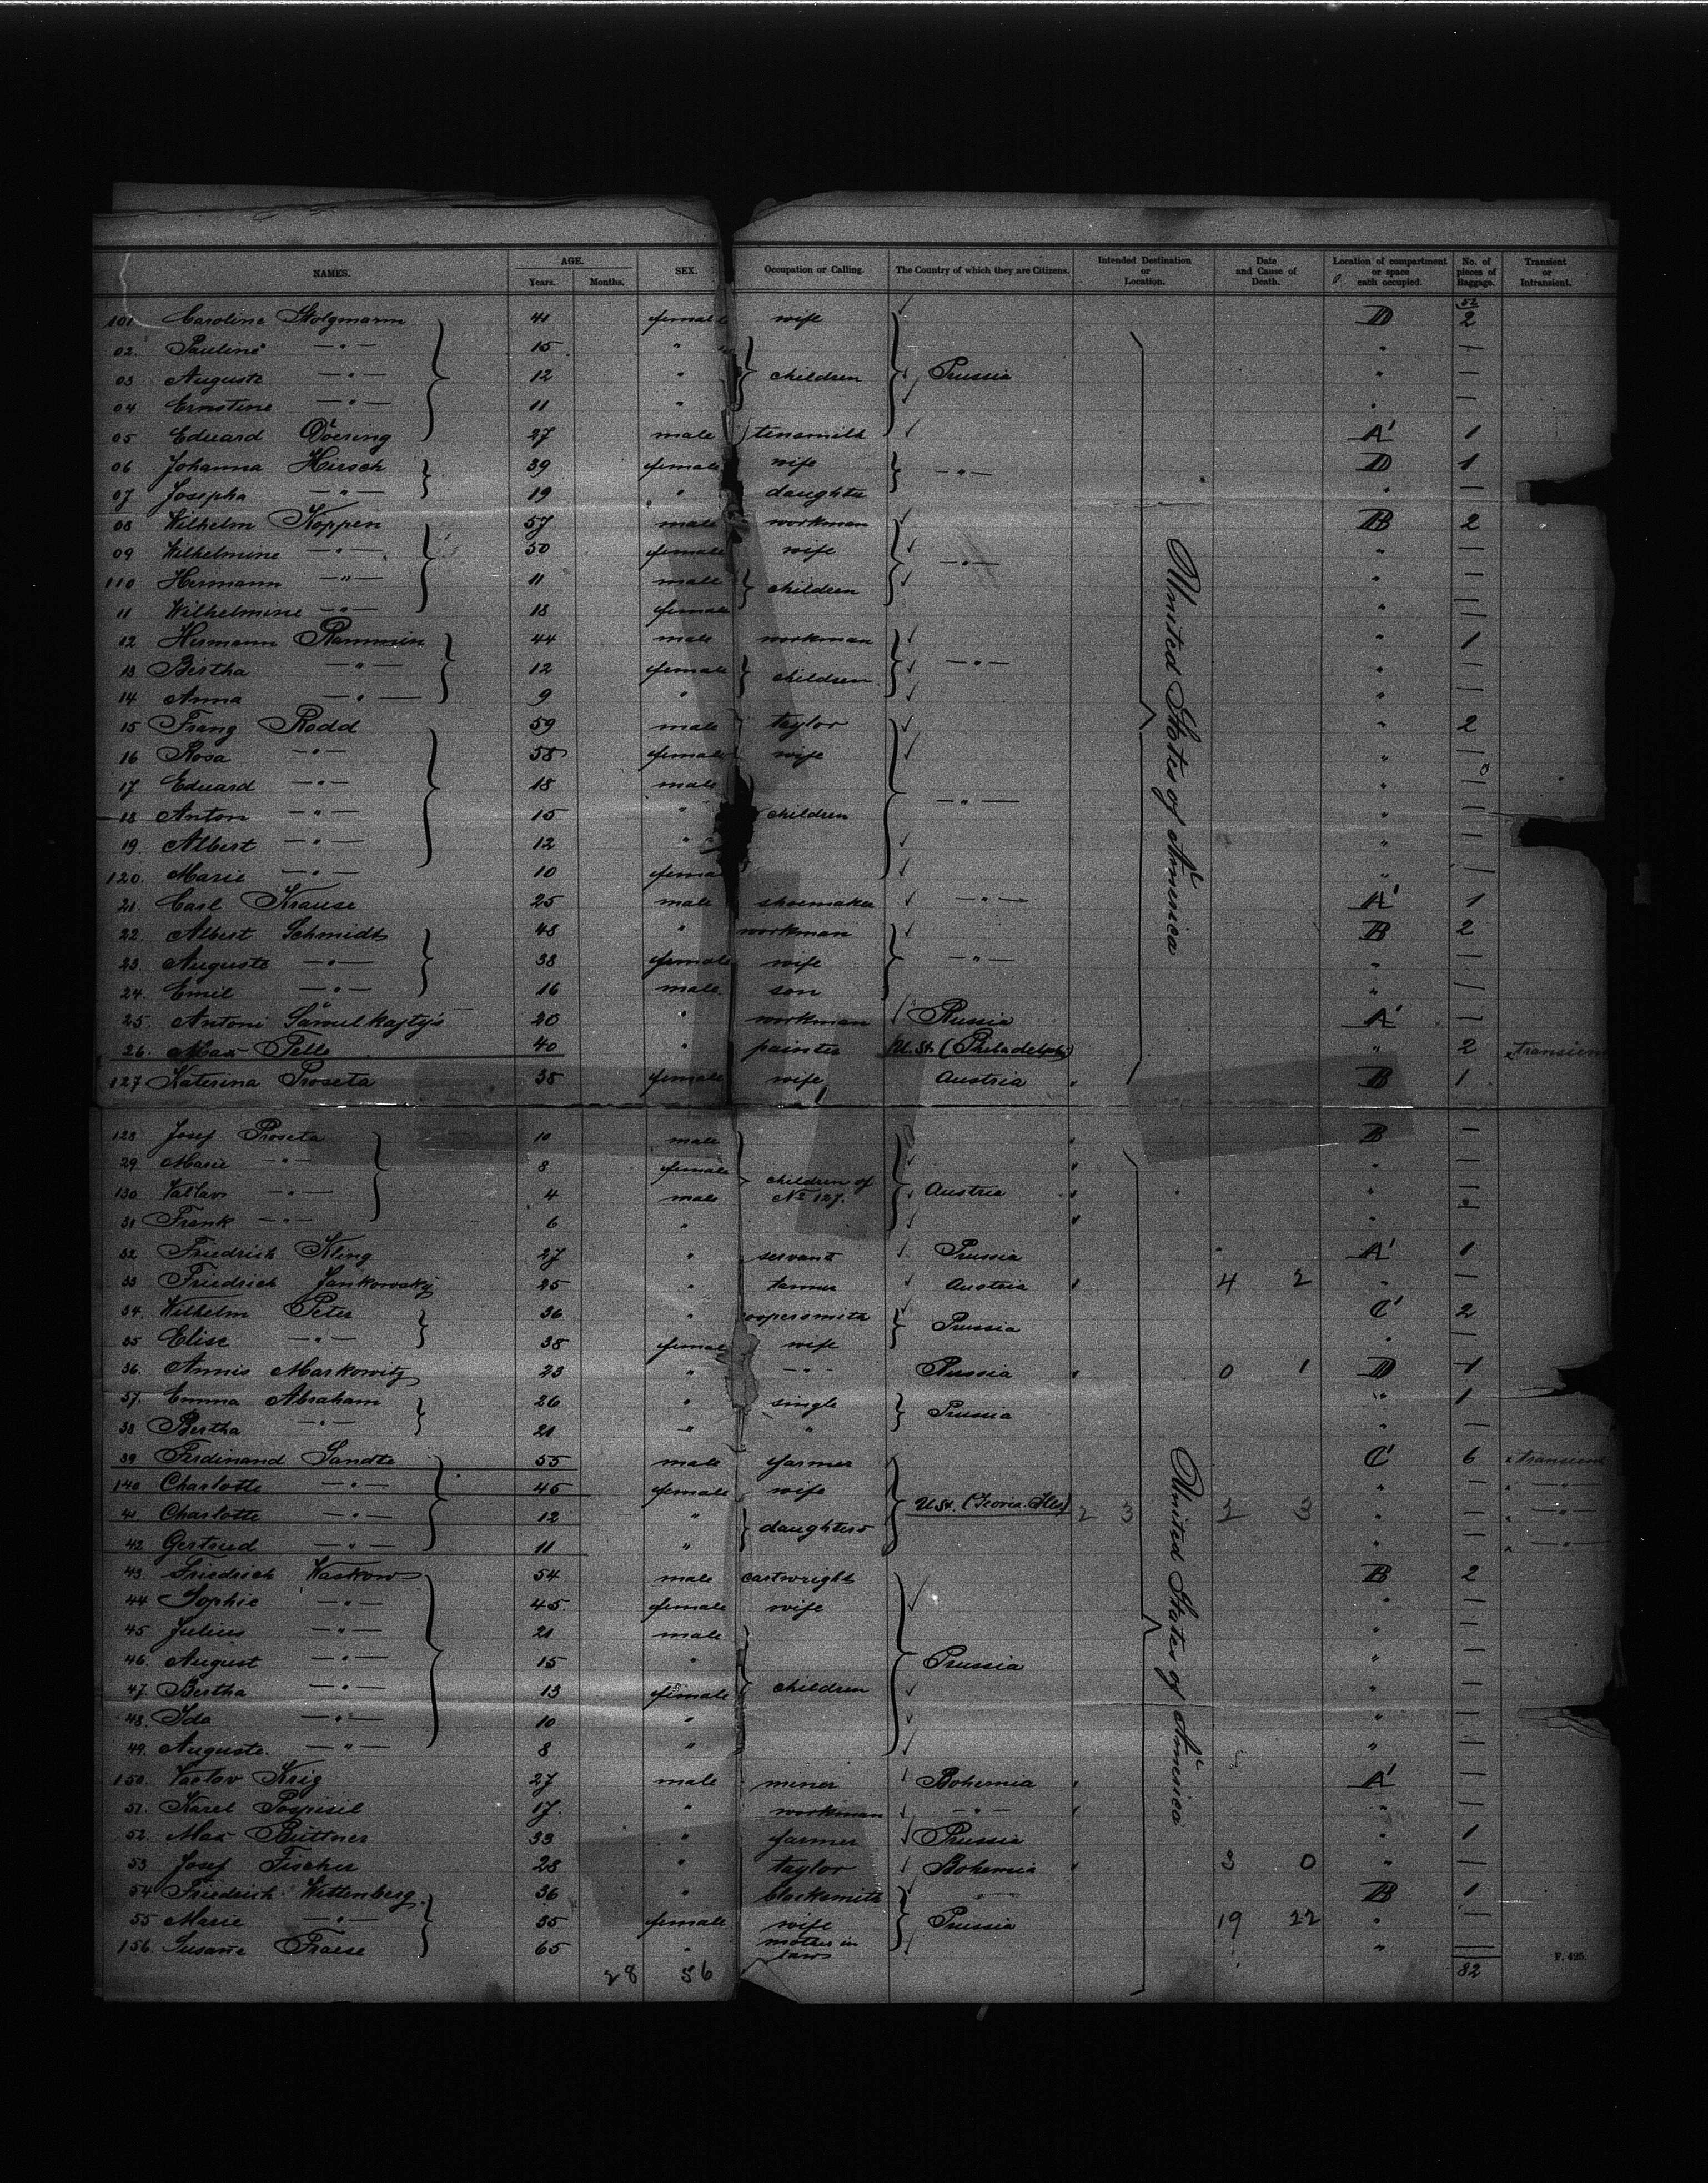 NAMES. AGE. Years. Months. SEX. Occupation or Calling. The Country of which they are Citizens. Intended Destination or Location. Date and Cause of Death. Location of compartment or space each occupied. No. of pieces of Baggage. Transient or Intransient.
52
101 Caroline Stolzmann 41 female wife D 2
02. Pauline —"— 15 " " —
03 Auguste —"— 12 " children Prussia " —
04 Ernstine —"— 11 " " —
05 Eduard Doering 27 male tinsmith A' 1
06 Johanna Hirsch 39 female wife —"— D 1
07 Josepha —"— 19 " daughte " —
08 Wilhelm Koppen 57 male workman B 2
09 Wilhelmine —"— 50 female wife —"— " —
110 Hermann —"— 11 male children " —
11 Wilhelmine —"— 18 female " —
12 Hermann Rammin 44 male workman " 1
13 Bertha —"— 12 female children —"— " —
14 Anna —"— 9 " " —
15 Franz Rodd 59 male taylor " 2
16 Rosa —"— 58 female wife " —
17 Eduard —"— 18 male —"— " —
18 Anton —"— 15 " children " —
19. Albert —"— 12 " " —
120. Marie —"— 10 femal " —
21. Carl Krause 25 male shoemaker —"— A' 1
22. Albert Schmidt 48 " workman B 2
23. Auguste —"— 38 female wife —"— " —
24. Emil —"— 16 male. son " —
25. Antoni 20 " workman Russia A' —
26. Max Pelle 40 " painter U.St. (Philadelphi) " 2 transien
127 Katerina Proseta 38 female wife Austria B 1
United States of America
128 Josef Proseta 10 male B —
29 Marie —"— 8 female children of " —
130 Vallav —"— 4 male No 127. Austria " —
31 Frank —"— 6 " " —
32 Friedrich Kling 27 " servant Prussia A' 1
33 Friedrich Jankowsky 25 " tanner Austria 4 2 " —
34. Wilhelm Peter 36 " coopersmith Prussia C' 2
35 Elise —"— 38 femal wife " —
36. Annis Markowitz 23 " —"— Russia 0 1 D 1
37. Emma Abraham 26 " single Prussia " 1
38 Bertha —"— 21 " " " —
39 Ferdinand Sandte 55 male farmer C' 6 transient
140 Charlotte —"— 45 female wife " — —"—
41 Charlotte —"— 12 " daughters U.St. 2 3 3 " — —"—
42 Gertrud —"— 11 " " — —"—
43. Friedrich Waskow 54 male cartwright B 2
44 Sophie —"— 45. female wife " —
45 Julius —"— 21 male " —
46. August —"— 15 " Prussia " —
47. Bertha —"— 13 female children " —
48. Ida —"— 10 " " —
49. Auguste. —"— 8 " " —
150. Vaclav Krig 27 male miner Bohemia A' —
51. Karel Pospisil 17. " workman —"— " —
52. Max Büttner 33 " farmer Prussia " 1
53 Josef Fischer 28 " taylor Bohemia 3 0 " —
54 Friedrich Wittenberg 36 " blacksmith B 1
55 Marie —"— 35 female wife Prussia 19 22 " —
156. Susane Fraese 65 " mother in law " —
United States of America
28 56 82
F. 425.